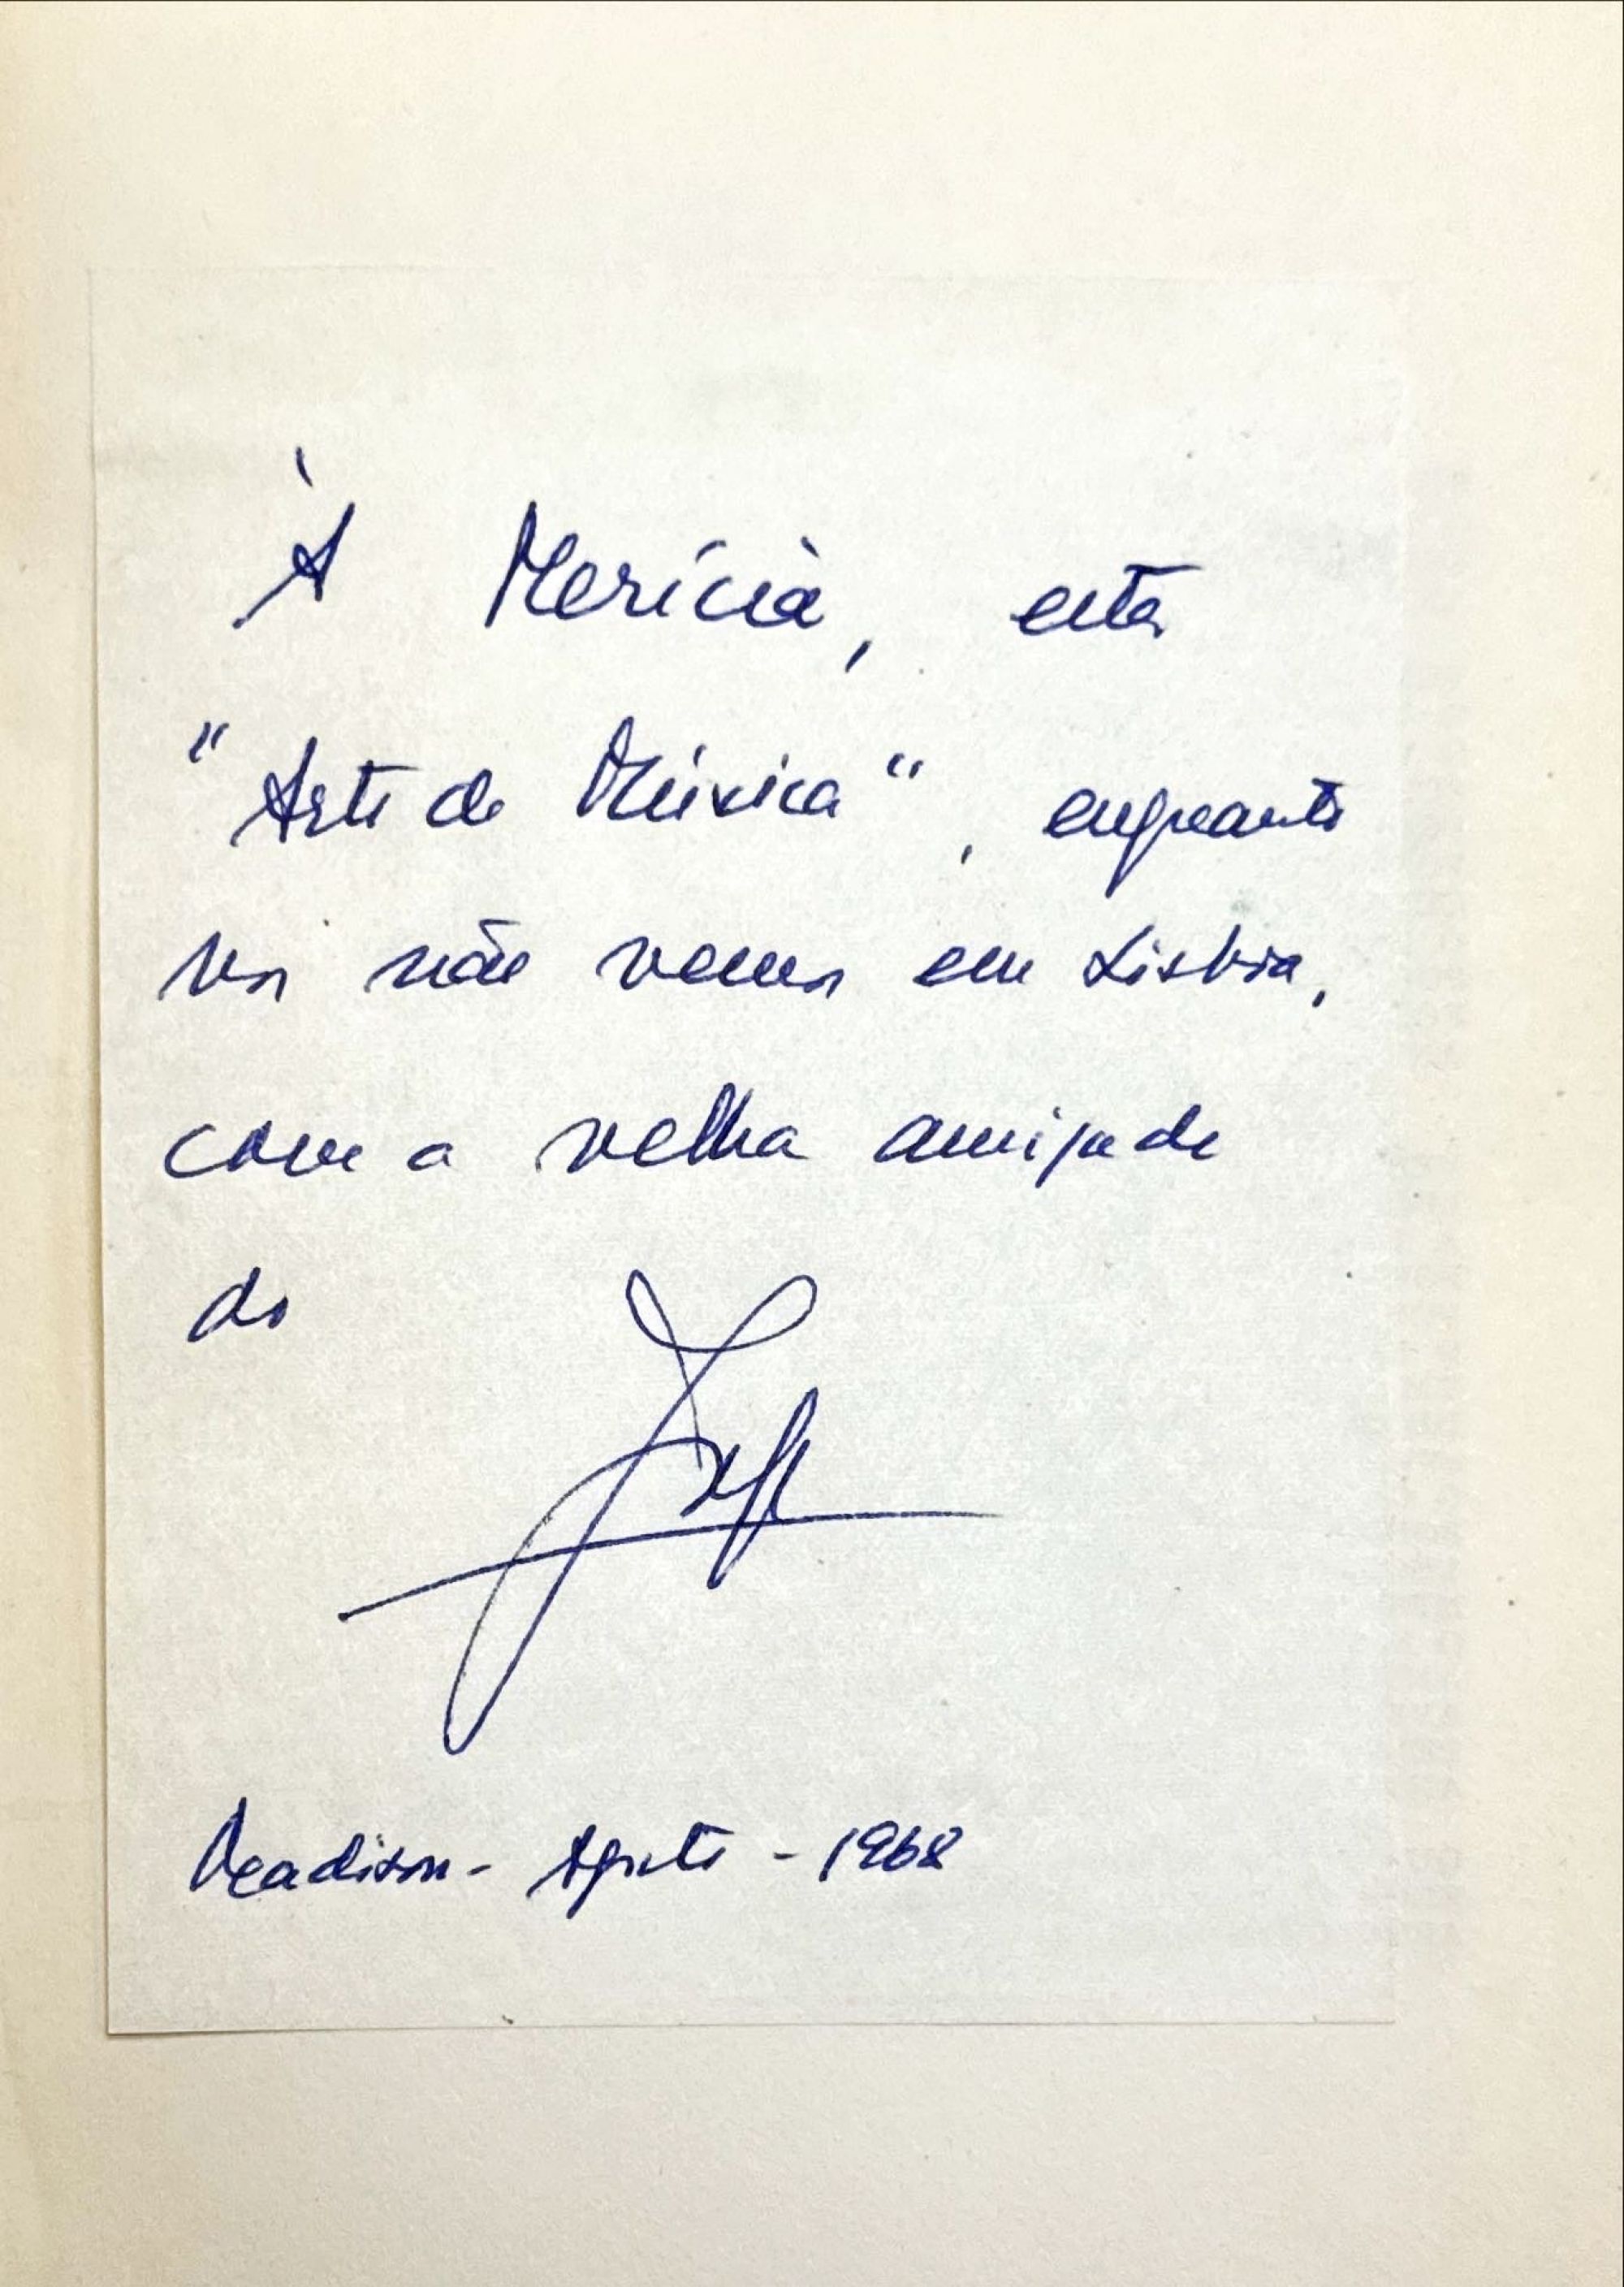 À Merícia, esta
"Arte de Música", enquanto
nos não vemos em Lisboa,
com a velha amizade
do
Madison - Agosto - 1968